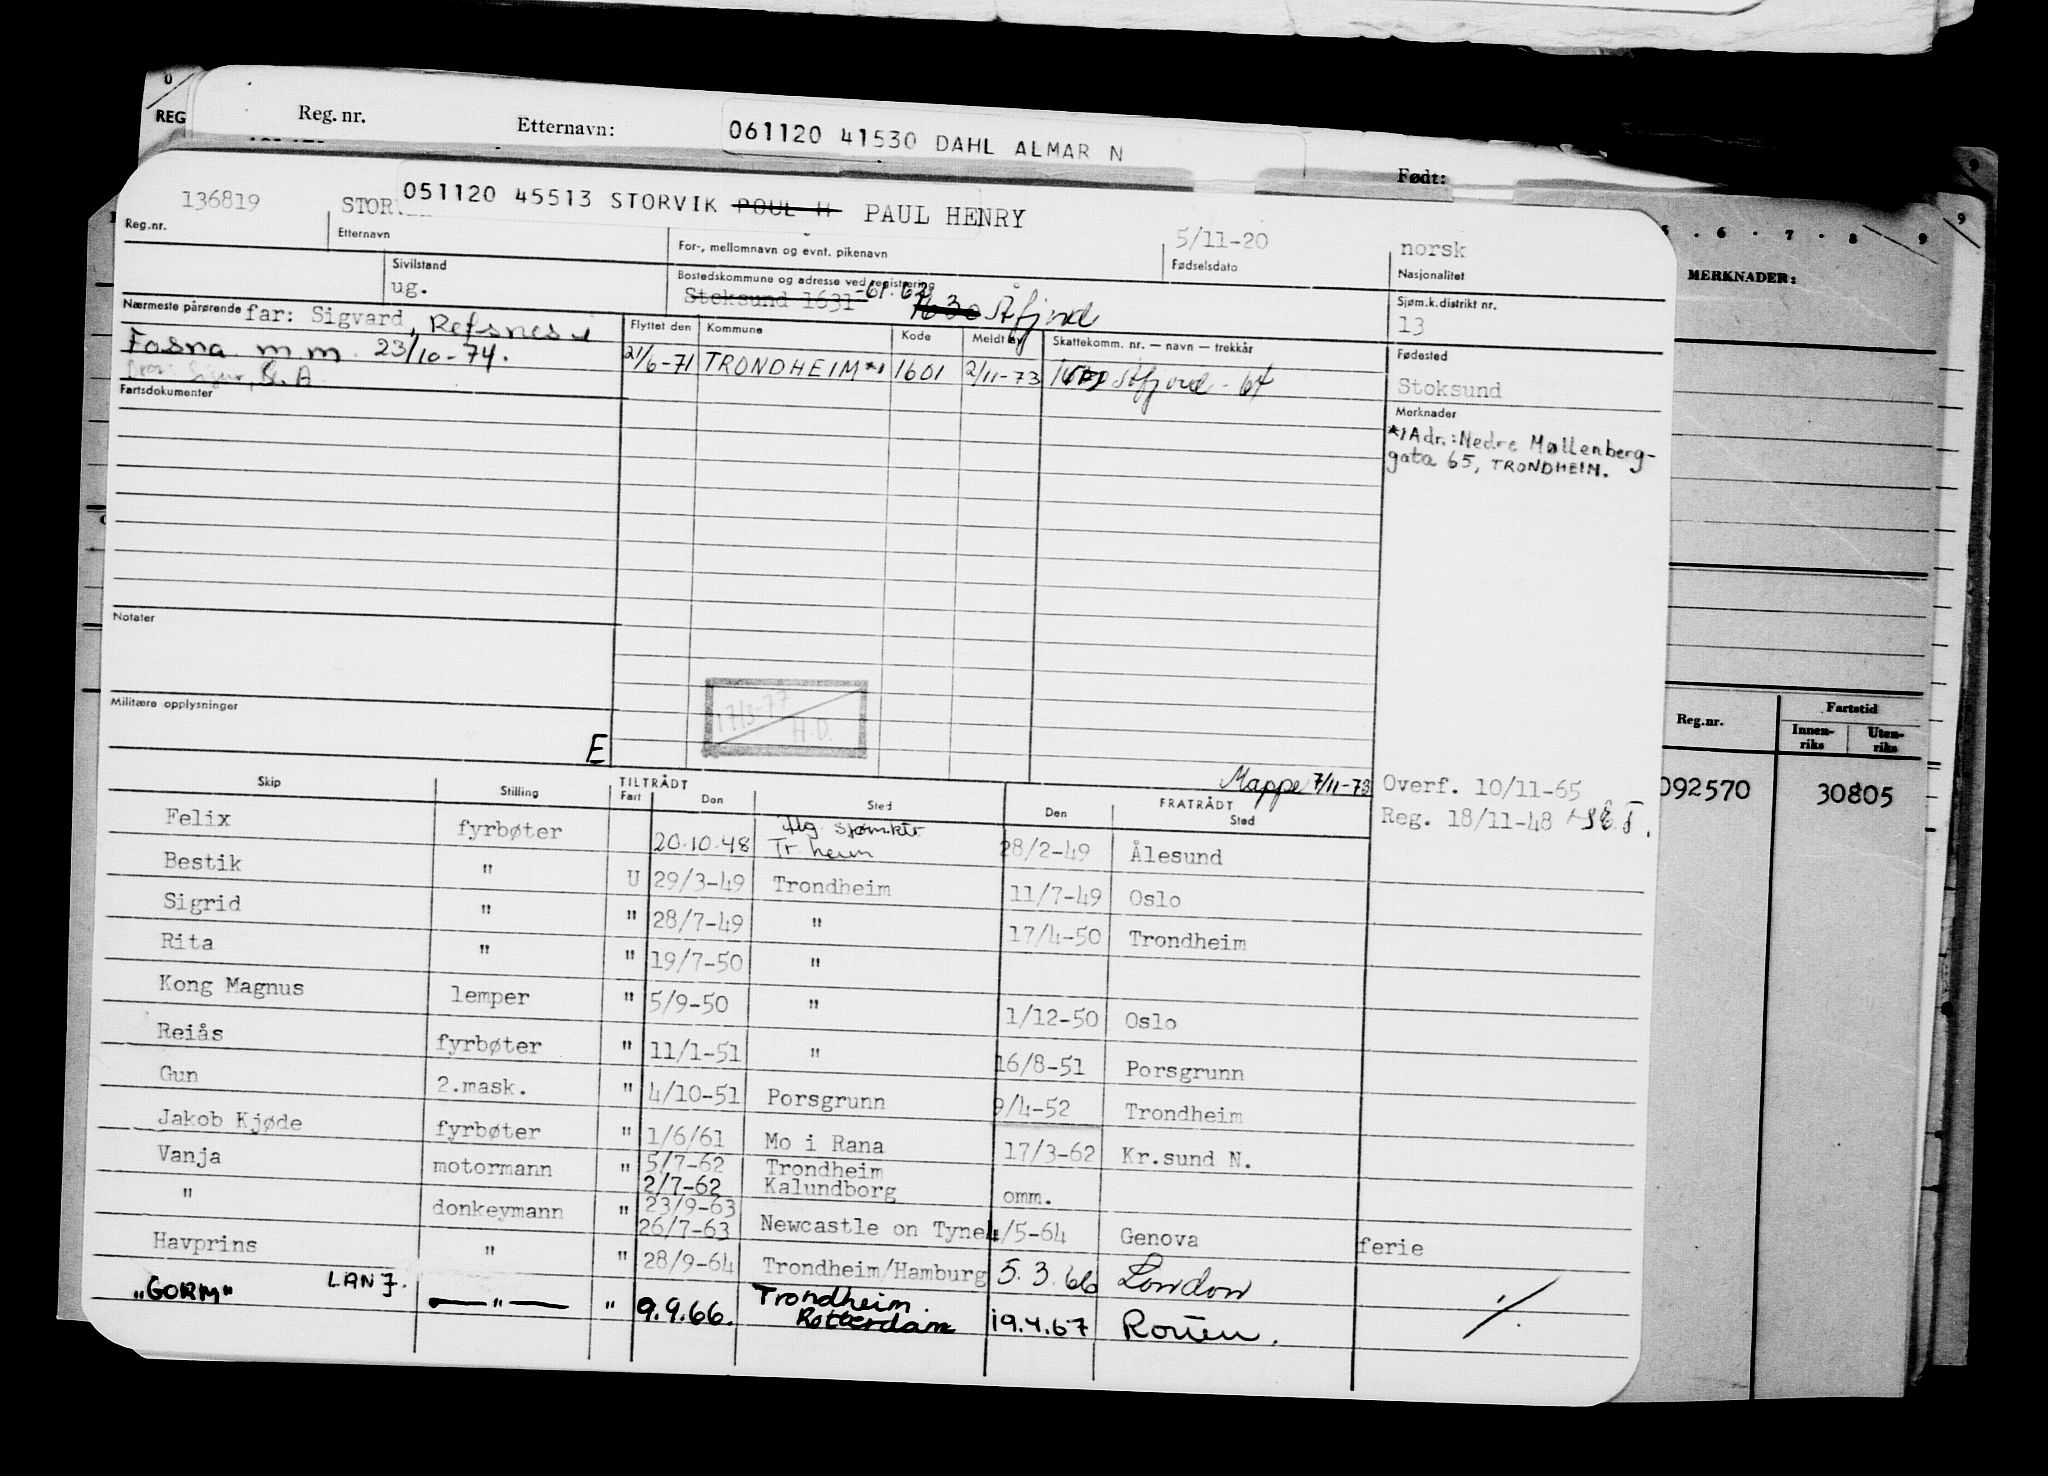 0
REG
Reg. nr.
Etternavn:
061120 41530 DAHL ALMAR N
Født:
9
136819
STOR
051120 45513 STORVIK POUL H PAUL HENRY
5/11-20
norsk
Reg.nr.
Etternavn
For-, mellomnavn og evnt. pikenavn
Fødselsdato
Nasjonalitet
Sivilstand
ug.
Bostedskommune og adresse ved registrering
Stoksund 1631
1630 Åfjord
Sjøm.k.distrikt nr.
13
Nærmeste pårørende
far: Sigvard, Refsnes i
Fosna m m 23/10-74.
Flyttet den
Kommune
Kode
Meldt av
Skattekomm. nr. — navn — trekkår
21/6-71 TRONDHEIM *) 1601 2/11-73 Åfjord - 64
Fødested
Stoksund
Fartsdokumenter
Merknader
*) Adr.: Nedre Møllenberg-
gata 65, TRONDHEIM.
Notater
17/3-77
H.O.
Militære opplysninger
E
Mappe 7/11-73
Overf. 10/11-65
Reg. 18/11-48
Skip
Stilling
TILTRÅDT
Fart
Den
Sted
FRATRÅDT
Den
Sted
Felix fyrbøter 20.10.48 Tr.heim 28/2-49 Ålesund
Bestik " U 29/3-49 Trondheim 11/7-49 Oslo
Sigrid " " 28/7-49 " 17/4-50 Trondheim
Rita " " 19/7-50 "
Kong Magnus lemper " 5/9-50 " 1/12-50 Oslo
Reiås fyrbøter " 11/1-51 " 16/8-51 Porsgrunn
Gun 2.mask. " 4/10-51 Porsgrunn 9/4-52 Trondheim
Jakob Kjøde fyrbøter " 1/6/61 Mo i Rana 17/3-62 Kr.sund N.
Vanja motormann " 5/7-62 Trondheim
2/7-62 Kalundborg omm.
" donkeymann " 23/9-63
26/7-63 Newcastle on Tyne 4/5-64 Genova ferie
Havprins " " 28/9-64 Trondheim/Hamburg 5.3.66 London
"GORM" LANJ. — " — " 9.9.66. Trondheim.
Rotterdam 19.4.67 Rouen.
6 7 8 9
MERKNADER:
Reg.nr.
Fartstid
Innen-
riks
Uten-
riks
092570 30805